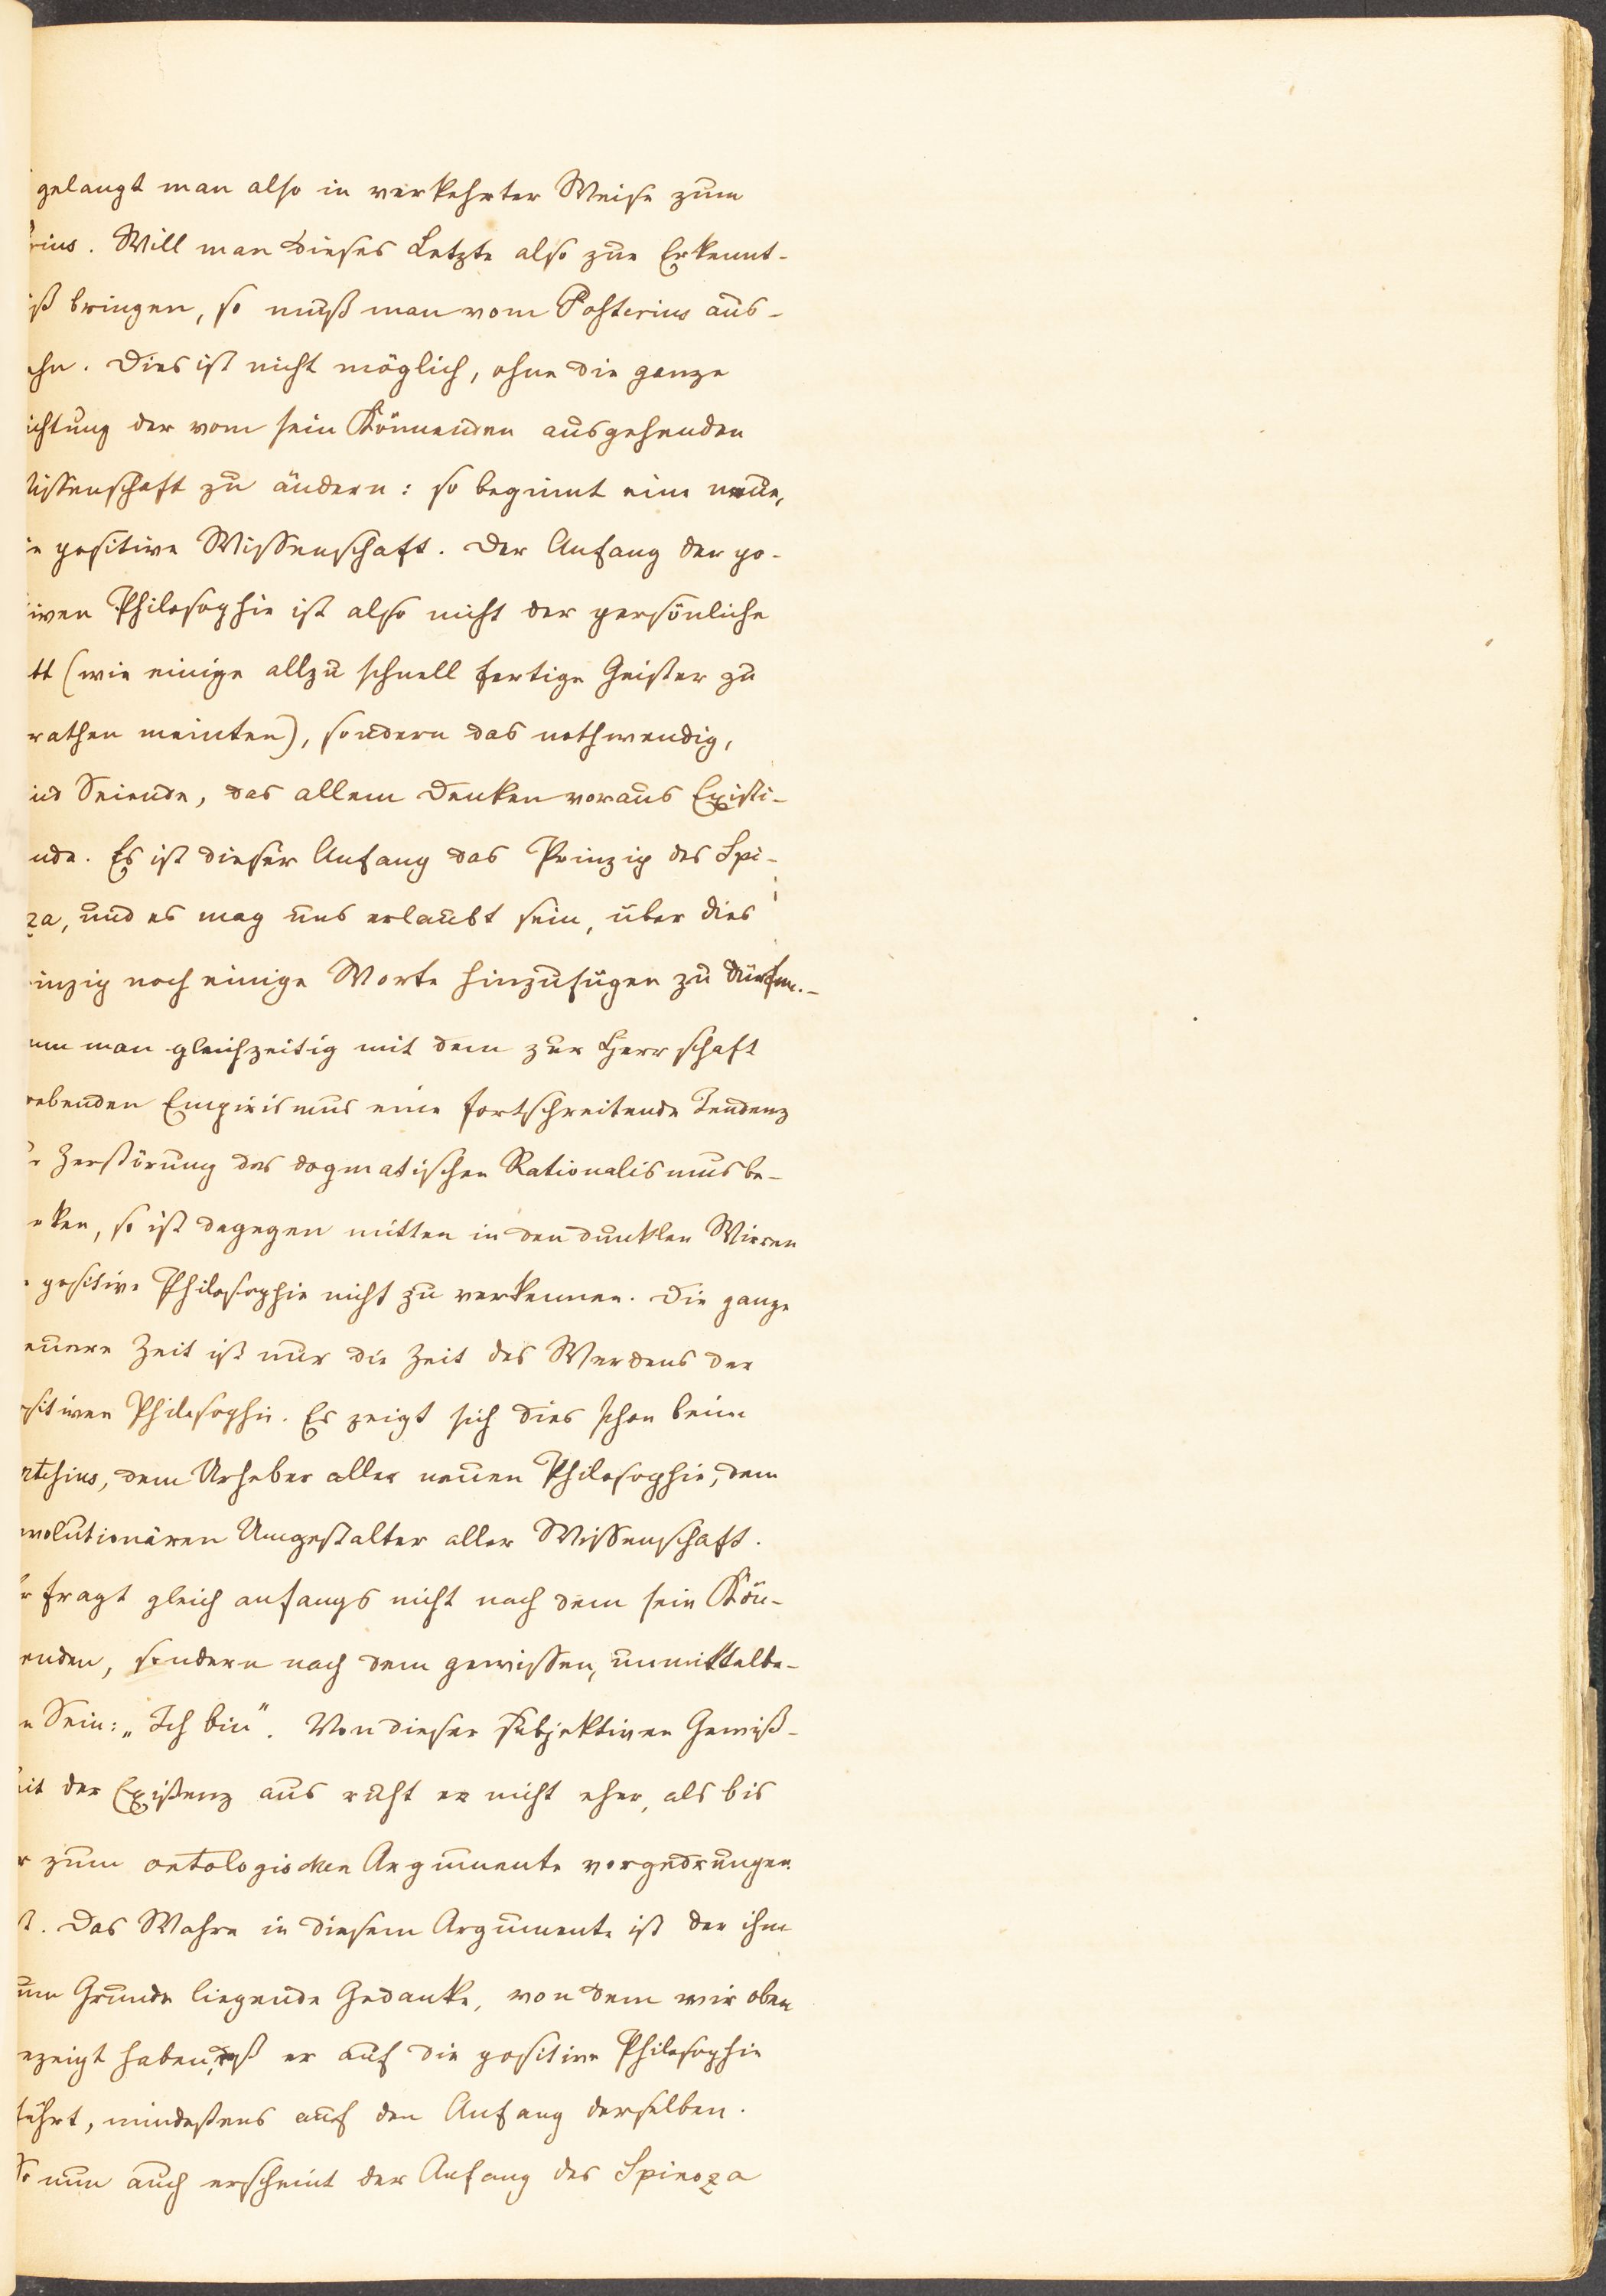 gelangt man also in verkehrter Weise zum
rius. Will man dieses Letzte also zur Erkennt-
iß bringen, so muß man vom Posterius aus-
ehn. Dies ist nicht möglich, ohne die ganze
ichtung der vom sein Könnenden ausgehenden
issenschaft zu ändern: so beginnt eine neue,
ie positive Wissenschaft. Der Anfang der po-
iven Philosophie ist also nicht der persönliche
tt (wie einige allzu schnell fertige Geister zu
rathen meinten), sondern das nothwendig,
ind Seiende, das allem Denken voraus Existi-
nde. Es ist dieser Anfang das Prinzip des Spi-
za, und es mag uns erlaubt sein, über dies
inzip noch einige Worte hinzufügen zu dürfen.-
nn man gleichzeitig mit dem zur Herrschaft
rebenden Empirismus eine fortschreitende Tendenz
r Zerstörung des dogmatischen Rationalismus be-
rken, so ist dagegen mitten in den dunklen Wirren
e positive Philosophie nicht zu verkennen. Die ganze
euere Zeit ist nur die Zeit des Werdens der
ositiven Philosophie. Es zeigt sich dies schon beim
rtesius, dem Urheber aller neuen Philosophie, dem
evolutionären Umgestalter aller Wissenschaft.
Er fragt gleich anfangs nicht nach dem sein Kön-
enden, sondern nach dem gewissen, unmittelba-
n Sein: „Ich bin“. Von dieser subjektiven Gewiß-
eit der Existenz aus ruht er nicht eher, als bis
r zum ontologischen Argumente vorgedrungen
st. Das Wahre in diesem Argumente ist der ihm
um Grunde liegende Gedanke, von dem wir oben
ezeigt haben, daß er auf die positive Philosophie
führt, mindestens auf den Anfang derselben.
So nun auch erscheint der Anfang des Spinoza